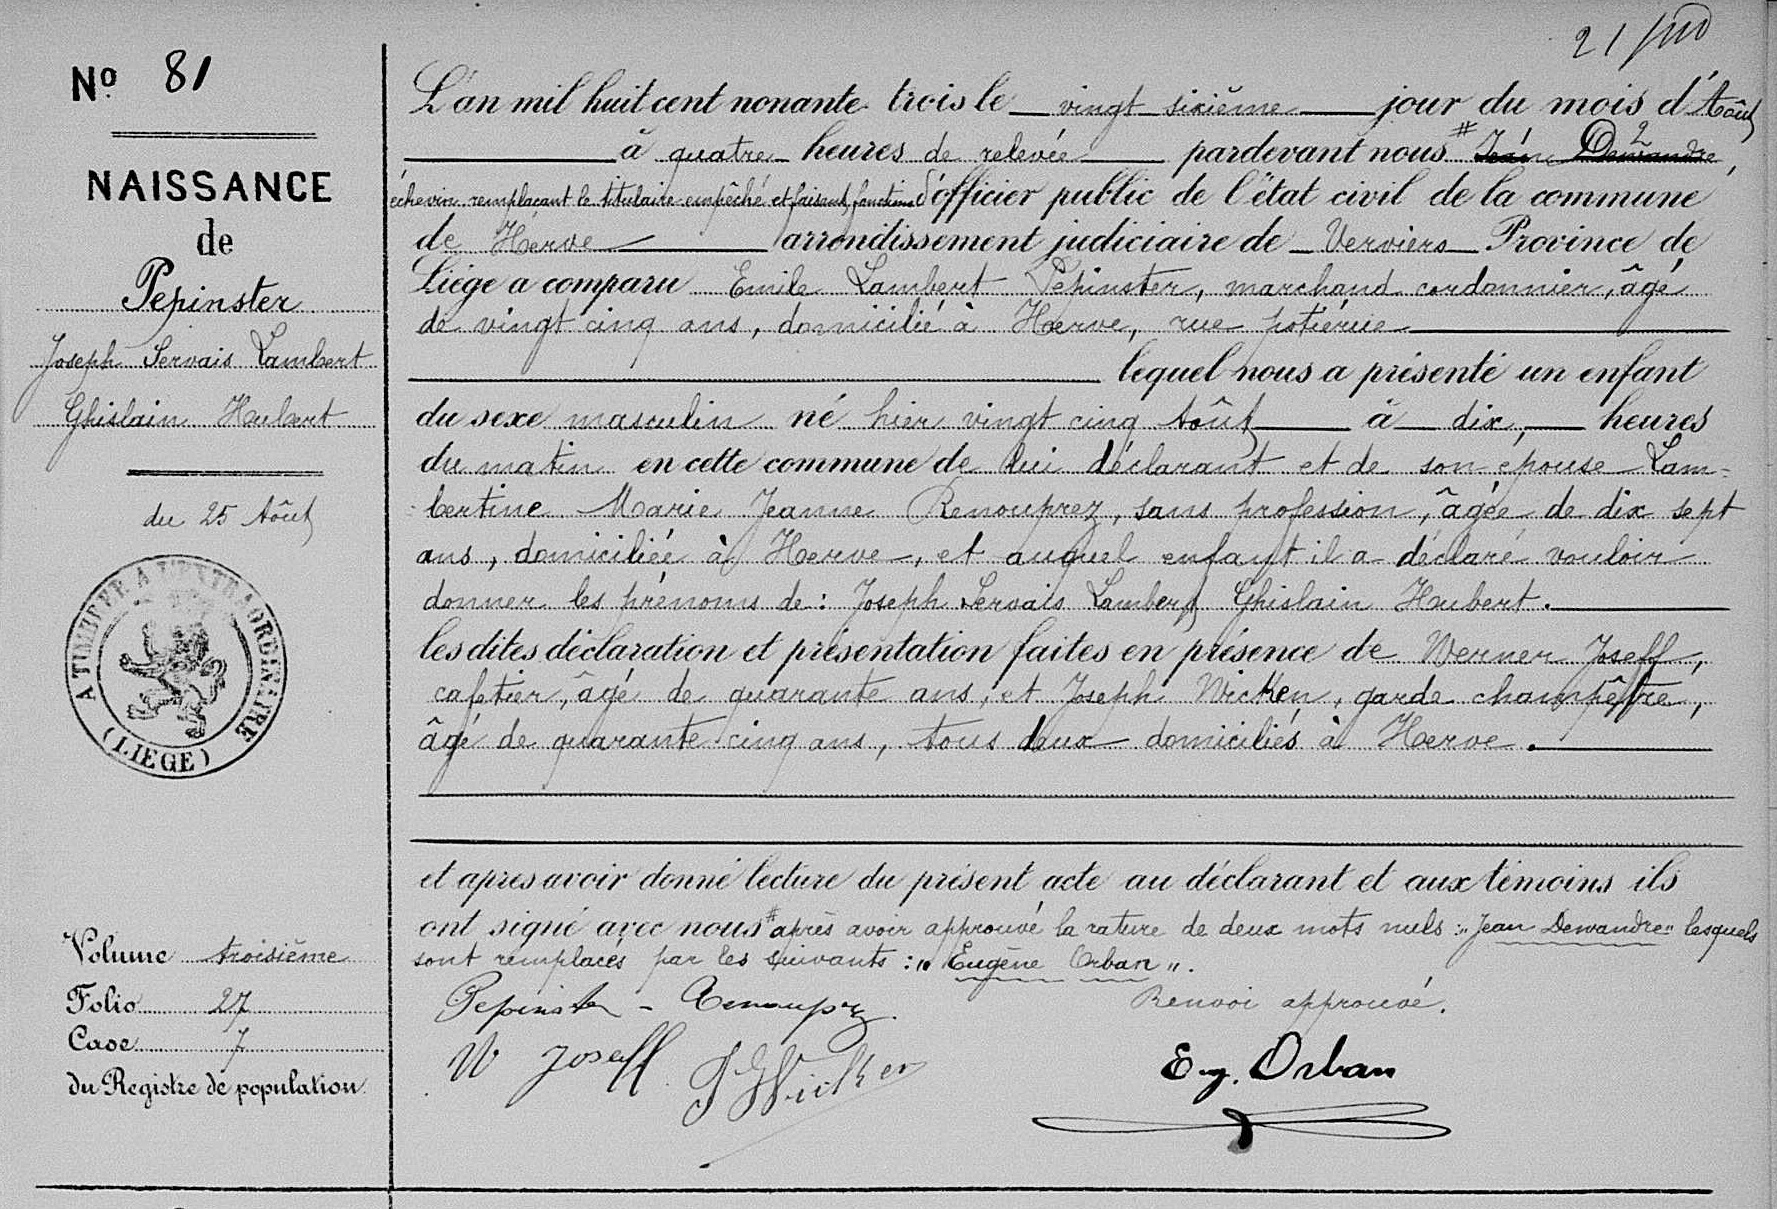 21
Nº 81
NAISSANCE
de
Pepinster
Joseph Servais Lambert
Ghislain Hubert
du 25 Août
A TIMBRER A L'EXTRAORDINAIRE
(LIEGE)
Volume troisième
Folio 27
Case 7
du Registre de population
L'an mil huit cent nonante trois le vingt sixième jour du mois d'Août
à quatre heures de relevée pardevant nous # Jean Dewandre,
échevin remplaçant le titulaire empêché et faisant fonctions d'officier public de l'état civil de la commune
de Herve arrondissement judiciaire de Verviers Province de
Liége a comparu Emile Lambert Pepinster, marchand cordonnier, âgé
de vingt cinq ans, domicilié à Herve, rue potiérue
lequel nous a présenté un enfant
du sexe masculin né hier vingt cinq Août à dix, heures
du matin en cette commune de lui déclarant et de son épouse Lam-
bertine Marie Jeanne Renouprez, sans profession, âgée de dix sept
ans, domiciliée à Herve, et auquel enfant il a déclaré vouloir
donner les prénoms de : Joseph Servais Lambert Ghislain Hubert.
les dites déclaration et présentation faites en présence de Werner Joseff,
cafetier, âgé de quarante ans, et Joseph Wicken, garde champêtre,
âgé de quarante cinq ans, tous deux domiciliés à Herve.
et après avoir donné lecture du présent acte au déclarant et aux témoins ils
ont signé avec nous # après avoir approuvé la rature de deux mots nuls : „Jean Dewandre" lesquels
sont remplacés par les suivants : „Eugène Orban".
Pepinster - Renouprez. Renvoi approuvé.
W Joseff J Wicken Eug. Orban